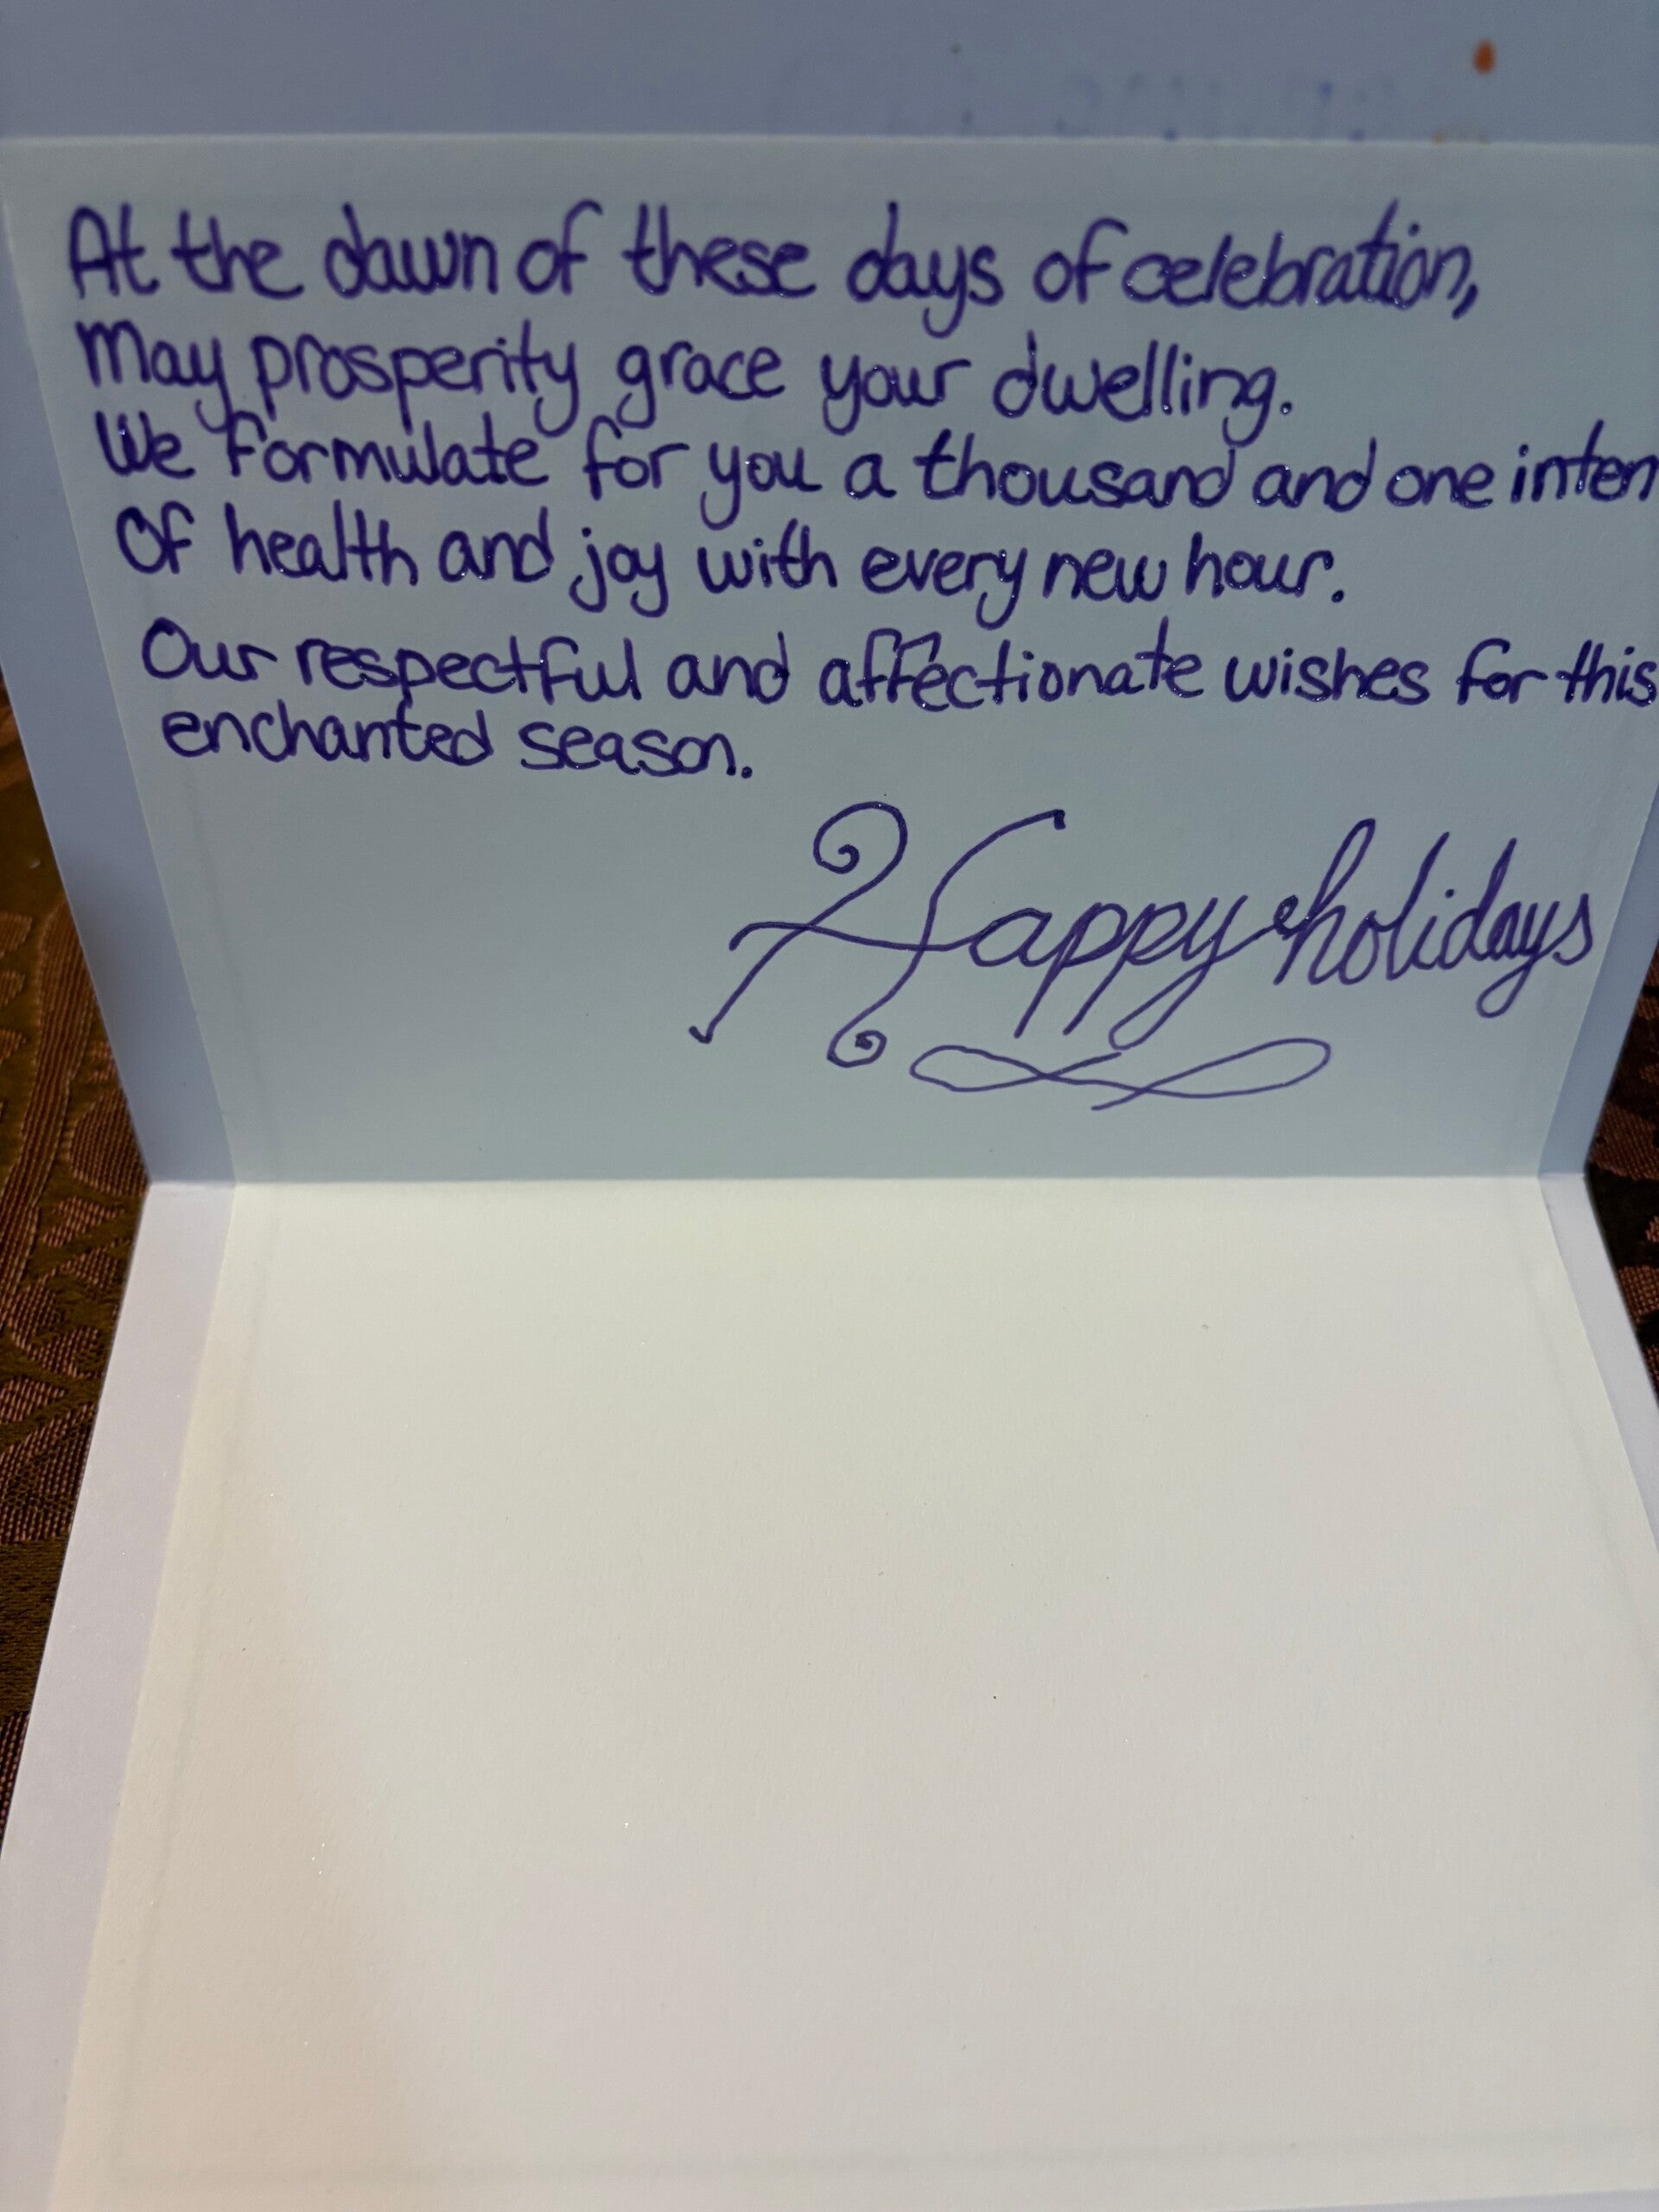 At the dawn of these days of celebration,
may prosperity grace your dwelling.
We formulate for you a thousand and one inten
Of health and joy with every new hour.
Our respectful and affectionate wishes for this
enchanted season.
Happy holidays